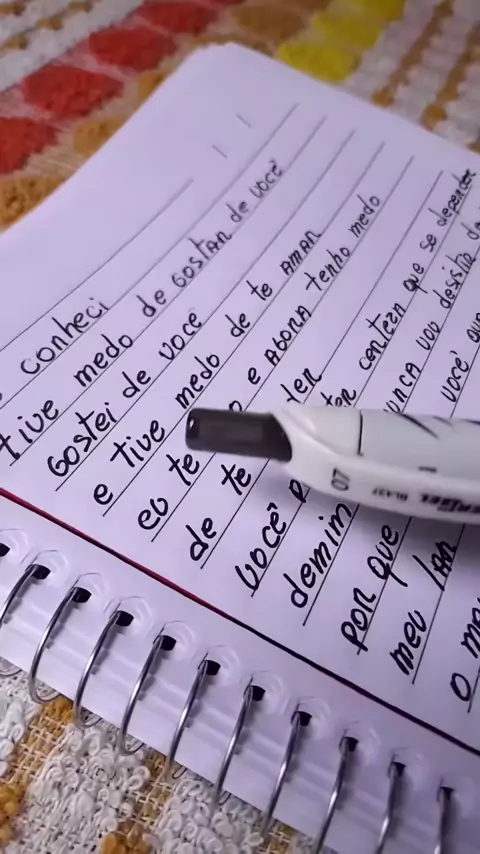 conheci
tive medo de Gostar de você
Gostei de você
e tive medo de te amar
eu te e Agora tenho medo
de te der
você ter certeza que se depender
demim nunca vou desistir
por que você
meu lar
o
0.7
BL437